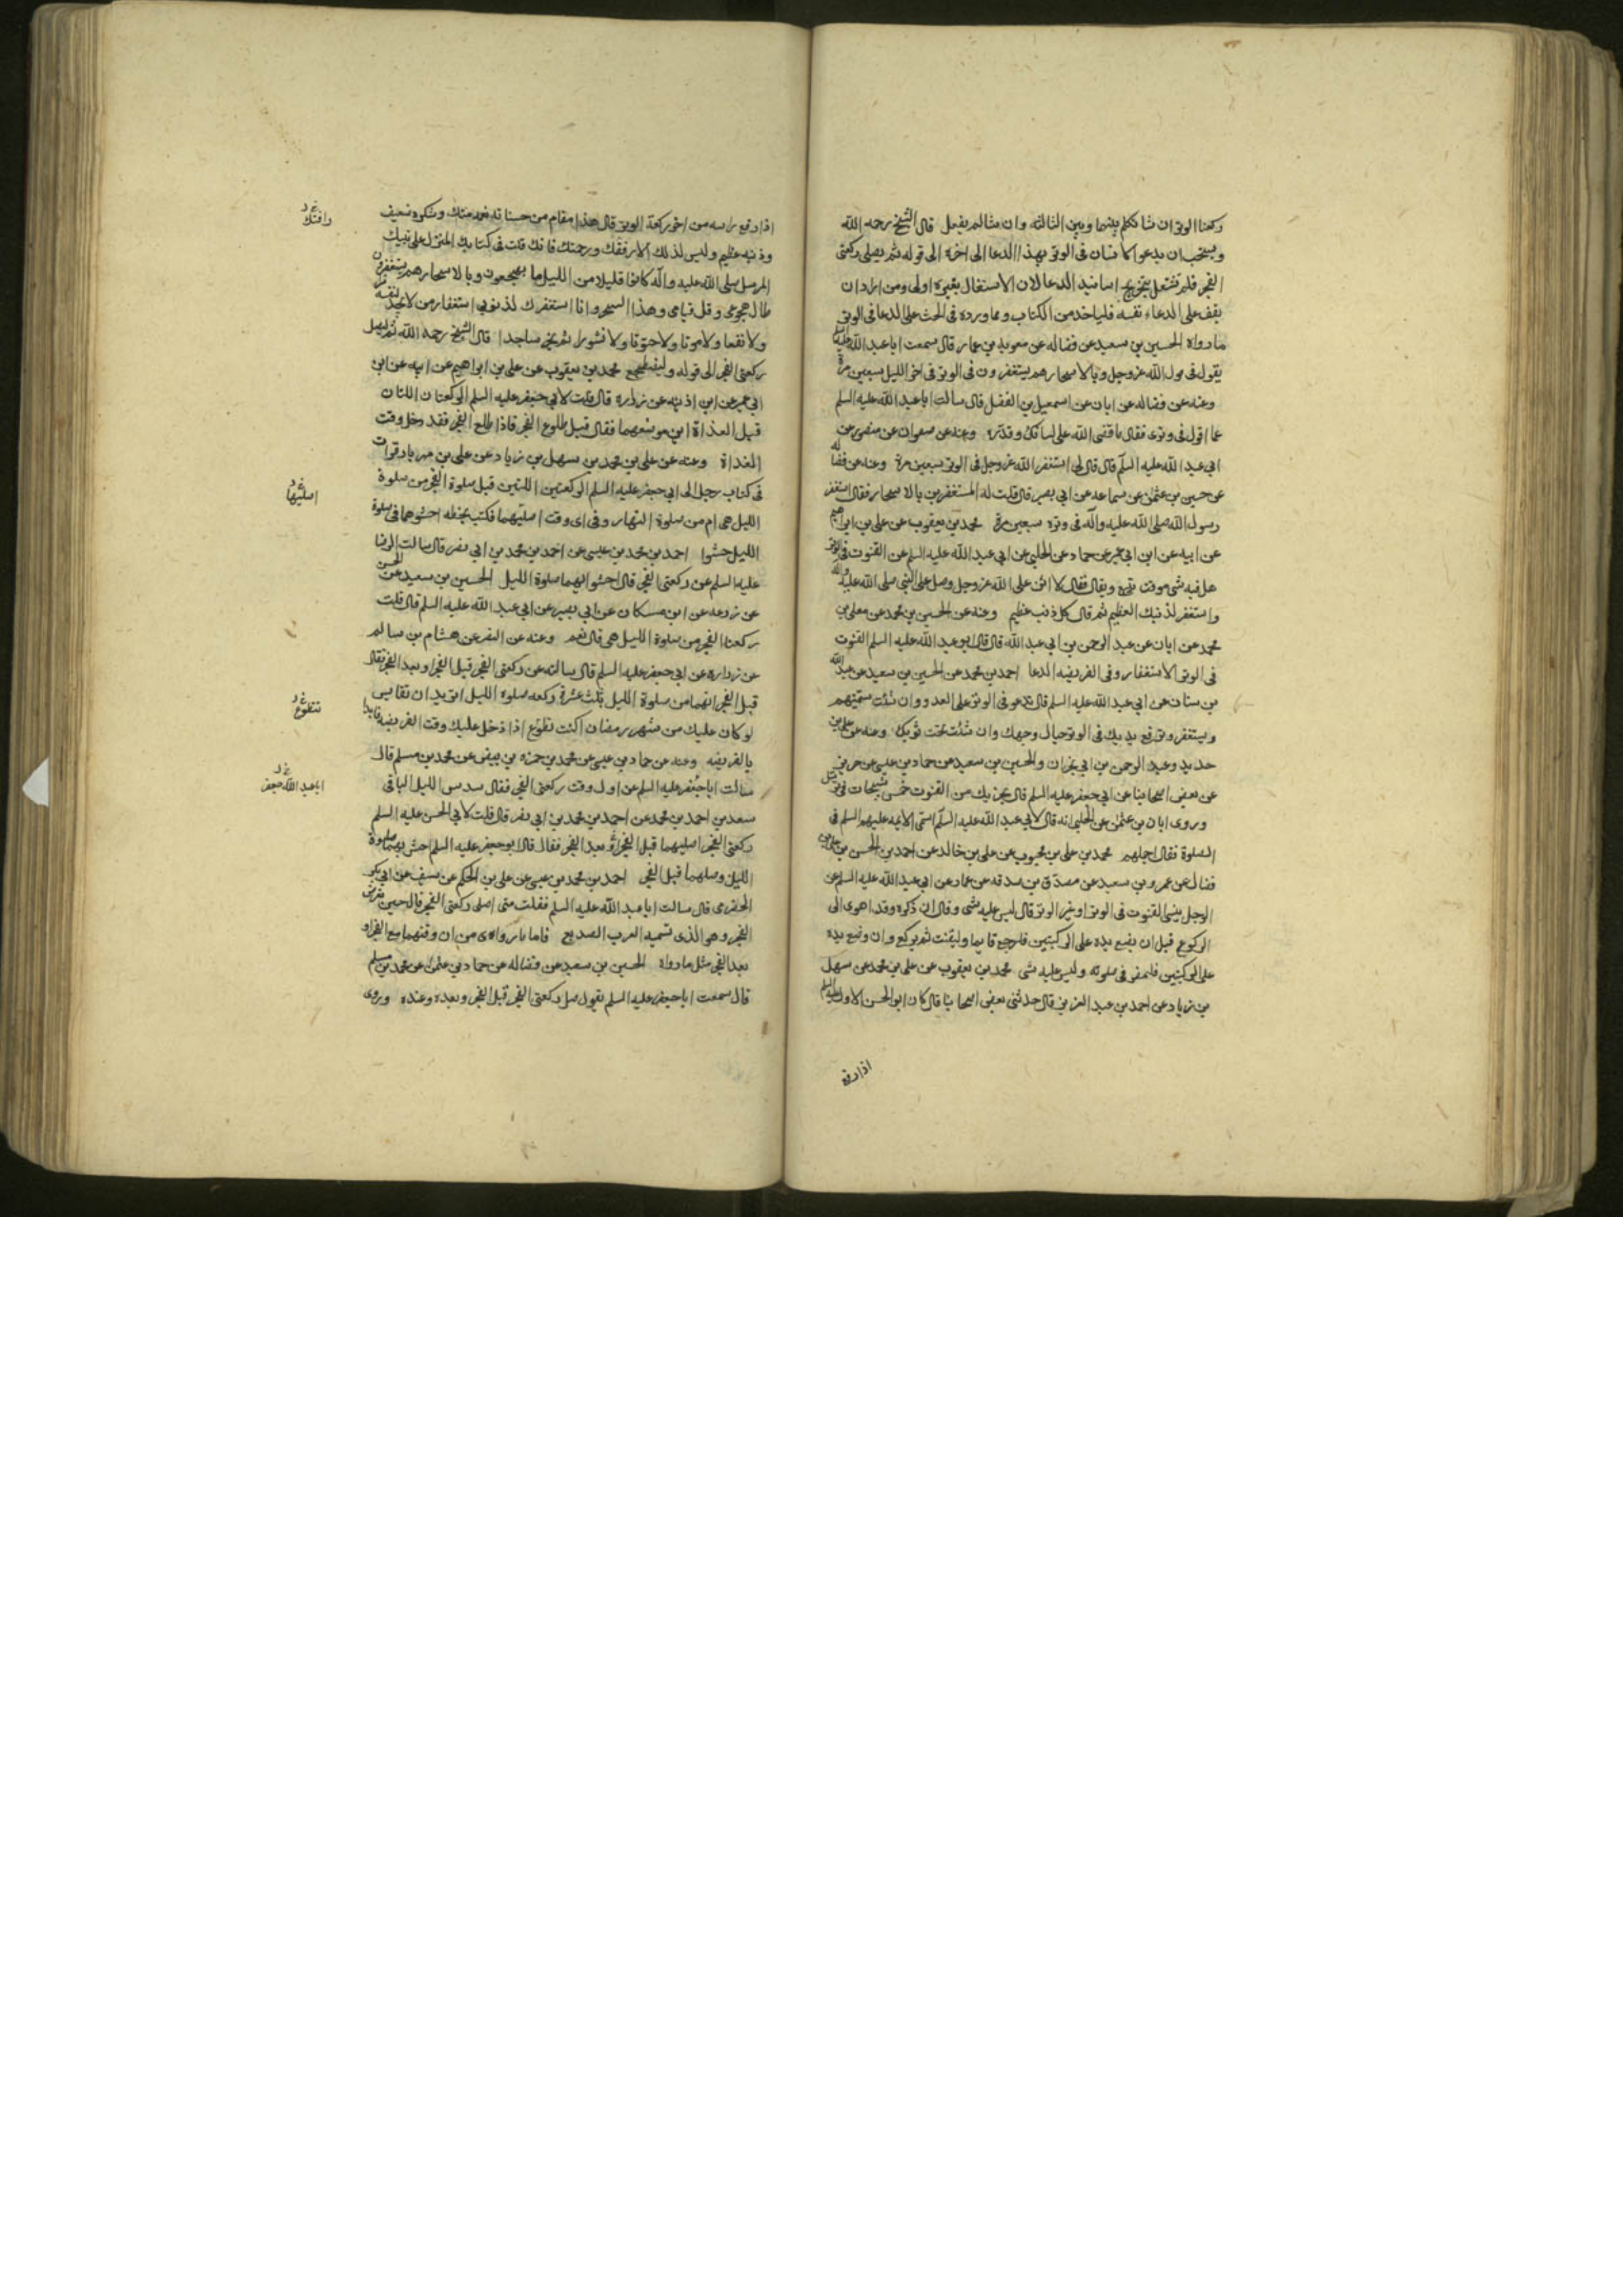 ركعتا الوتر ان شا تكلم بينهما وبين الثالثه وان شا لم يفعل قال الشيخ رحمه الله
ويستحب ان يدعو الانسان فى الوتر بهذا الدعا الى اخره الى قوله ثم يصلى ركعتى
الفجر فلم نشتغل بتخريج اسانيد الدعا لان الاشتغال بغيره اولى ومن اراد ان
يقف على الدعاء نفسه فلياخذ من الكتاب ومما ورد فى الحث على الدعا فى الوتر
ما رواه الحسين بن سعيد عن فضاله عن معويه بن عمار قال سمعت ابا عبد الله عليه
يقول فى قول الله عز وجل وبالاسحار هم يستغفرون فى الوتر فى اخر الليل سبعين مرة
وعنه عن فضاله عن ابان عن اسمعيل بن الفضل قال سالت ابا عبد الله عليه السلم
عما اقول فى وترى فقال ما قضى الله على لسانك وقدره وعنه عن صفوان عن منصور عن
ابى عبد الله عليه السلم قال قال لى استغفر الله عز وجل فى الوتر سبعين مرة وعنه عن فضاله
عن حسين بن عثمن عن سماعه عن ابى بصير قال قلت له المستغفرين بالاسحار فقال استغفر
رسول الله صلى الله عليه واله فى وتره سبعين مرة محمد بن يعقوب عن على بن ابراهيم
عن ابيه عن ابن ابى عمير عن حماد عن الحلبى عن ابى عبد الله عليه السلم عن القنوت فى الوتر
هل فيه شى موقت يتبع ويقال فقال لا اثن على الله عز وجل وصل على النبى صلى الله عليه واله
واستغفر لذنبك العظيم ثم قال كل ذنب عظيم وعنه عن الحسين بن محمد عن معلى بن
محمد عن ابان عن عبد الرحمن بن ابى عبد الله قال قال ابو عبد الله عليه السلم القنوت
فى الوتر الاستغفار وفى الفريضه الدعا احمد بن محمد عن الحسين بن سعيد عن عبد الله
بن سنان عن ابى عبد الله عليه السلم قال تدعو فى الوتر على العدو وان شئت سميتهم
وتستغفر وترفع يديك فى الوتر حيال وجهك وان شئت تحت ثوبك وعنه عن على بن
حديد وعبد الرحمن بن ابى نجران والحسين بن سعيد عن حماد بن عيسى عن حريز
عن بعض اصحابنا عن ابى جعفر عليه السلم قال يجزيك من القنوت خمس تسبيحات فى ترسل
وروى ابان بن عثمن عن الحلبى انه قال لابى عبد الله عليه السلم اسمى الايمه عليهم السلم فى
الصلوة فقال اجملهم محمد بن على بن محبوب عن على بن خالد عن احمد بن الحسن بن على بن
فضال عن عمرو بن سعيد عن مصدق بن صدقه عن عمار عن ابى عبد الله عليه السلم عن
الرجل ينسى القنوت فى الوتر او غير الوتر قال ليس عليه شى وقال ان ذكره وقد اهوى الى
الركوع قبل ان يضع يده على الركبتين فليرجع قايما وليقنت ثم يركع وان وضع يده
على الركبتين فليمض فى صلوته وليس عليه شى محمد بن يعقوب عن على بن محمد عن سهل
بن زياد عن احمد بن عبد العزيز قال حدثنى بعض اصحابنا قال كان ابو الحسن الاول عليه السلم
اذا رفع
اذا رفع راسه من اخر ركعة الوتر قال هذا مقام من حسناته نعمه منك وشكره ضعيف
وذنبه عظيم وليس لذلك الا رفقك ورحمتك فانك قلت فى كتابك المنزل على نبيك
المرسل صلى الله عليه واله كانوا قليلا من الليل ما يهجعون وبالاسحار هم يستغفرون
طال هجوعى وقل قيامى وهذا السحر وانا استغفرك لذنوبى استغفار من لا يجد لنفسه ضرا
ولا نفعا ولا موتا ولا حيوتا ولا نشورا ثم يخر ساجدا قال الشيخ رحمه الله ثم ليصل
ركعتى الفجر الى قوله وليضطجع محمد بن يعقوب عن على بن ابراهيم عن ابيه عن ابن
ابى عمير عن ابن اذينه عن زراره قال قلت لابى جعفر عليه السلم الركعتان اللتان
قبل الغداة اين موضعهما فقال قبل طلوع الفجر فاذا طلع الفجر فقد دخل وقت
الغداة وعنه عن على بن محمد بن سهل بن زياد عن على بن مهزيار قرات
فى كتاب رجل الى ابى جعفر عليه السلم الركعتين اللتين قبل صلوة الفجر من صلوة
الليل هى ام من صلوة النهار وفى اى وقت اصليهما فكتب بخطه احشوهما فى صلوة
الليل حشوا احمد بن محمد بن عيسى عن احمد بن محمد بن ابى نصر قال سالت الرضا
عليه السلم عن ركعتى الفجر قال احشوا بهما صلوة الليل الحسين بن سعيد عن الحسن
عن زرعه عن ابن مسكان عن ابى بصير عن ابى عبد الله عليه السلم قال قلت
ركعتا الفجر من صلوة الليل هى قال نعم وعنه عن النضر عن هشام بن سالم
عن زراره عن ابى جعفر عليه السلم قال سالته عن ركعتى الفجر قبل الفجر او بعد الفجر فقال
قبل الفجر انهما من صلوة الليل ثلث عشرة ركعه صلوه الليل اتريد ان تقايس
لو كان عليك من شهر رمضان اكنت تطوع اذا دخل عليك وقت الفريضه فابدا
بالفريضه وعنه عن حماد بن عيسى عن محمد بن حمزه بن بيض عن محمد بن مسلم قال
سالت ابا جعفر عليه السلم عن اول وقت ركعتى الفجر فقال سدس الليل الباقى
سعد بن احمد بن محمد عن احمد بن محمد بن ابى نصر قال قلت لابى الحسن عليه السلم
ركعتى الفجر اصليهما قبل الفجر او بعد الفجر فقال قال ابو جعفر عليه السلم احش بهما صلوة
الليل وصلهما قبل الفجر احمد بن محمد بن عيسى عن على بن الحكم عن سيف عن ابى بكر
الحضرمى قال سالت ابا عبد الله عليه السلم فقلت متى اصلى ركعتى الفجر قال حين يعترض
الفجر وهو الذى تسميه العرب الصديع فاما ما رواه من ان وقتهما مع الفجر او
بعد الفجر مثل ما رواه الحسين بن سعيد عن فضاله عن حماد بن عثمن عن محمد بن مسلم
قال سمعت ابا جعفر عليه السلم يقول صل ركعتى الفجر قبل الفجر وبعده وعنده وروى
رافتك
اصليها
تتطوع
ابا عبد الله جعفر